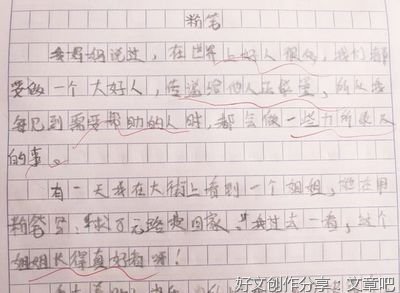 粉笔
我妈妈说过，在世界上好人很多，我们都
要做一个大好人，传递给他人正能量，所以我
每见到需要帮助的人时，都会做一些力所能及
的事。
有一天我在大街上看到一个姐姐，她在用
粉笔写：求7元路费回家。我过去一看，这个
姐姐长得真好看呀！
好文创作分享：文章吧